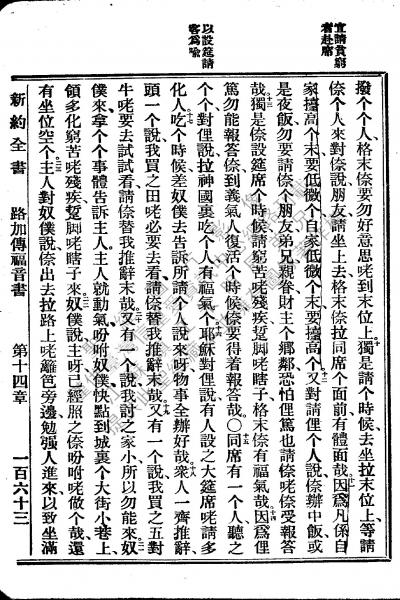 宜請貧窮
者赴席
以設筵請
客爲喻
撥个个人格末倷要勿好意思咾到末位上獨是請个時候去坐拉末位上等請
倷个人來對倷說朋友請坐上去格末倷拉同席个面前有體面哉因爲凡係自
家擡高个末要低微个自家低微个末要擡高个又對請俚个人說倷辦中飯或
是夜飯勿要請倷个朋友弟兄親眷財主个鄉鄰恐怕俚篤也請倷咾倷受報答
哉獨是倷設筵席个時候請窮苦咾殘疾蹩脚咾瞎子格末倷有福氣哉因爲俚
篤勿能報答倷到義氣人復活个時候倷要得着報答哉〇同席有一个人聽之
个个對俚說拉神國裏吃个人有福氣个耶穌對俚說有人設之大筵席咾請多
化人吃个時候差奴僕去告訴所請个人說來呀物事全辦好哉衆人一齊推辭
頭一个說我買之田咾必要去看請倷替我推辭末哉又有一个說我買之五對
牛咾要去試試看請倷替我推辭末哉又有一个說我討之家小所以勿能來奴
僕來拿个个事體告訴主人主人就動氣吩咐奴僕快點到城裏个大街小巷上
領多化窮苦咾殘疾蹩脚咾瞎子來奴僕說主呀已經照之倷吩咐咾做个哉還
有坐位空个主人對奴僕說倷出去拉路上咾籬笆旁邊勉强人進來以致坐滿
新約全書 路加傳福音書 第十四章 一百六十三